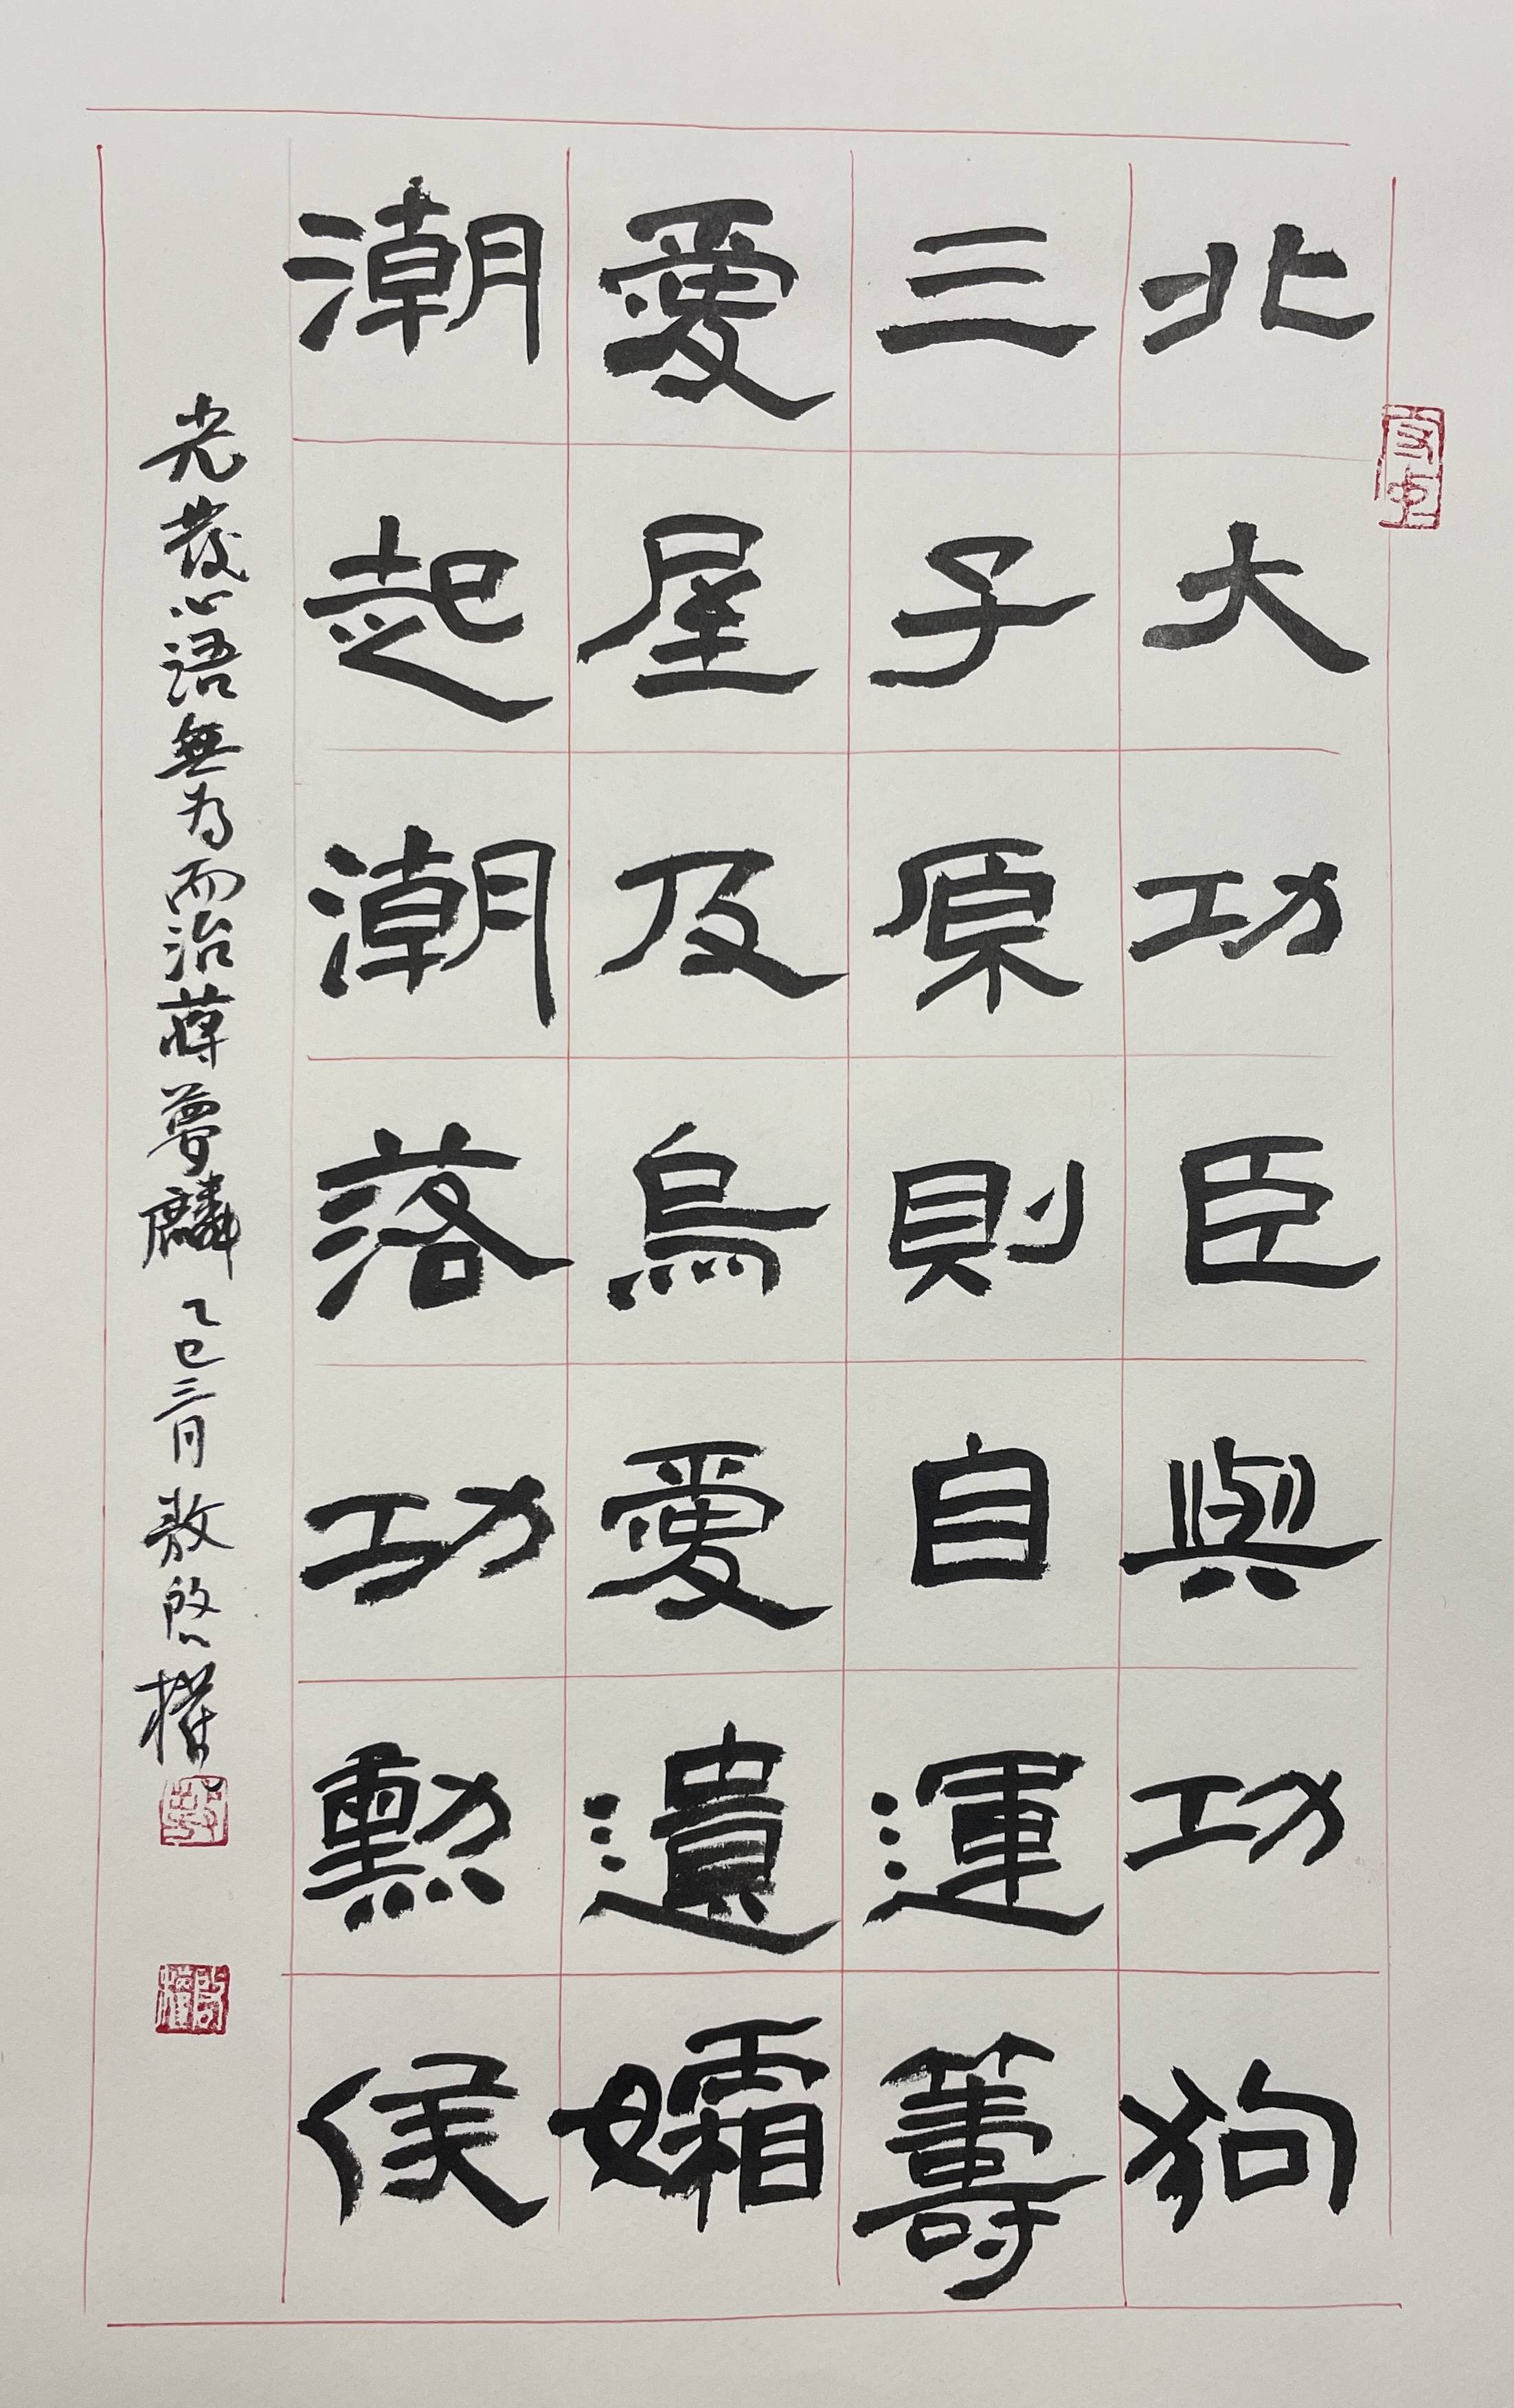 北大功臣與功狗
三子原則自運籌
愛屋及烏愛遺孀
潮起潮落功勲侯
光茂心語無為而治蔣夢麟 乙巳三月 敖啓權